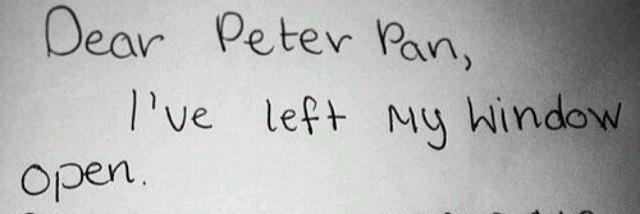 Dear Peter Pan,
I've left My Window
open.